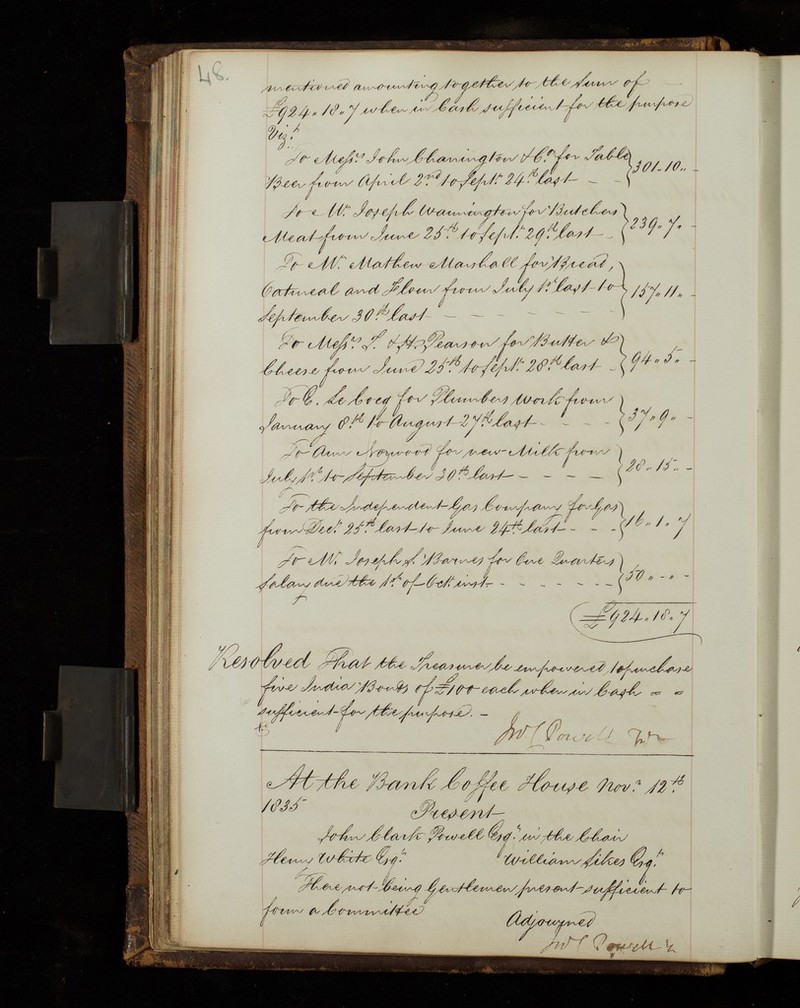 48.
mentioned amounting together to the Sum of
£924.. 18.. 7 when in Cash sufficient for the purpose
Vizt.
To Messrs. John Charrington & Co. for Table } 301.. 10.. -
Beer from April 2nd. to Septr. 24th. last - -
To Mr. Joseph Warrington for Butchers } 239.. 7.. -
Meat from June 25th. to Septr. 29th. last -
To Mr. Mathew Marshall for Bread,
Oatmeal and Flour from July 1st. last to } 157.. 11.. -
September 30th. last - - - - - - -
To Messrs. S. & H. Pearson for Butter & } 94.. 5.. -
Cheese from June 25th. to Septr. 28th. last -
To C. Le Cocq for Plumbers Work from } 37.. 9.. -
January 8th. to August 27th. last - - - -
To Ann Norwood for new Milk from } 28.. 15.. -
July 1st. to September 30th. last - - - - -
To the Independent Gas Company for Gas } 16.. 1.. 7
from Decr. 25th. last to June 24th. last - - -
To Mr. Joseph S. Barnes for One Quarters } 50.. -.. -
Salary due the 1st. of Octr. inst. - - - - - - -
£924.. 18.. 7
Resolved That the Treasurer be empowered to purchase
five India Bonds of £100 each when in Cash
sufficient for the purpose. -
Jno C Powell
At the Bank Coffee House Novr. 12th.
1835
Present
John Clark Powell Esqr. in the Chair
Henry White Esqr. William Sikes Esqr.
There not being Gentlemen present sufficient to
form a Committee
Adjourned
Jno C Powell